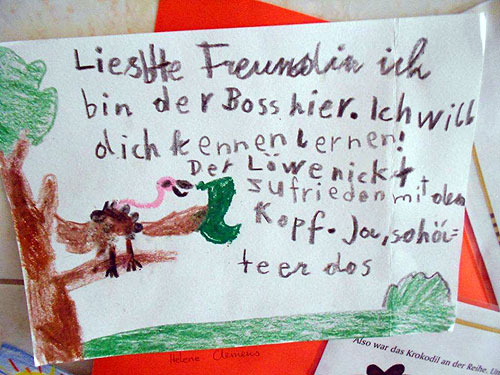 Liesbtte Freundin ich
bin der Boss hier. Ich will
dich kennenlernen!
Der Löwe nickt
zufrieden mit dem
Kopf. Ja, so hör=
te er das
Helene Clemens
Also war das Krokodil an der Reihe. Un